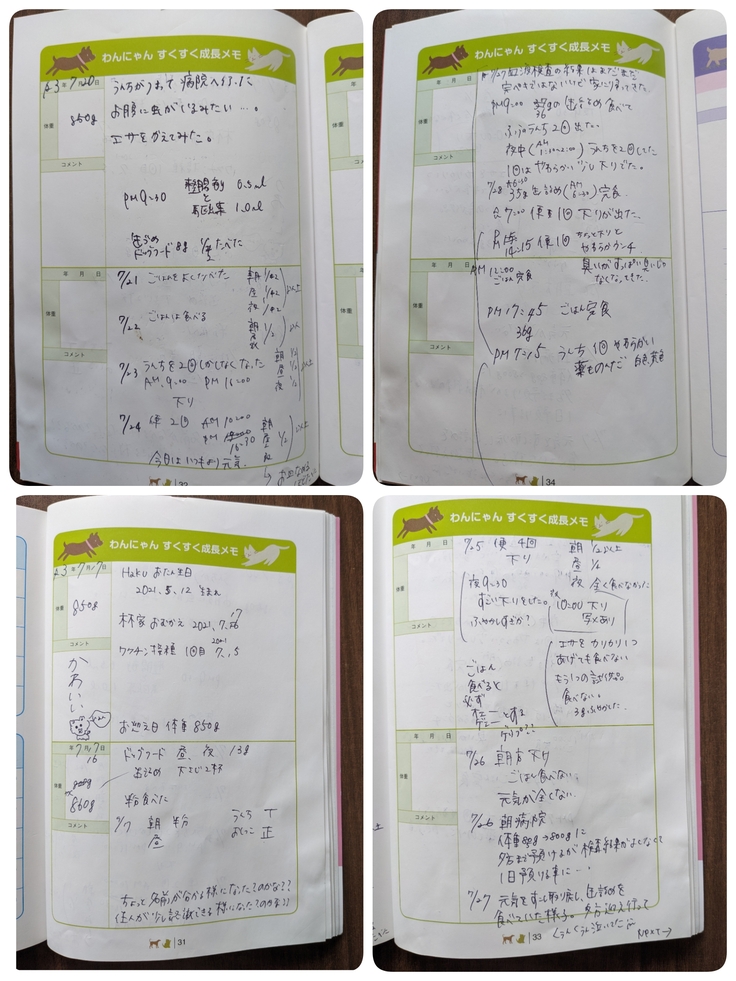 わんにゃん すくすく成長メモ
年 月 日
R3年7月20日
体重
850g
コメント
うんちがゆるくて病院へ行った
お腸に虫がいるみたい…。
エサをかえてみた。
PM9:30
整腸剤 0.5ml
と
駆虫薬 1.0ml
缶づめ
ドッグフード8g 1/2たべた
年 月 日
体重
コメント
7/21 ごはんをよくたべた
朝 1/2
昼 1/2
夜 1/2
以上
7/22 ごはんは食べる
朝
昼
夜
1/2
7/23 うんちを2回しかしなくなった
AM.9:00 PM16:00
下り
朝 1/2
昼 1/2
夜 1/2
以上
7/24 便 2回 AM10:00
PM
16:30
朝
昼 1/2
夜
以上
今日はいつもより元気。
32
わんにゃん すくすく成長メモ
年 月 日
体重
コメント
7/27 血液検査の結果はまだまだ
完ぺきではないけど家に帰ってきた。
PM9:00
36
gの缶づめ食べて
ふつううんち2回出た。
夜中(AM 1:30~2:00) うんちを2回した
1回はやわらかい 少し下りでした。
7/28 AM6:30 35g缶詰め(AM 6:30)完食
7:00 便 1回 下りが出た。
14:15 便1回 ちょっと下りと
やわらかウンチ
年 月 日
体重
コメント
PM12:00
ごはん完食
臭いがすっぱい臭いじゃ
なくなってきた。
PM17:45 ごはん完食
36g
PM7:15 うんち 1回 やわらかい
薬ものんだ 白色黄色
34
わんにゃん すくすく成長メモ
R3年7月17日
体重
850g
コメント
かわいい
Haku おたん生日
2021.5.12 生まれ
林家 おむかえ 2021.7.16
17
ワクチン接種 1回目 2021 7.15
お迎え日 体重 850g
年7月17日
16
体重
860g
コメント
ドッグフード 昼、夜 13g
缶詰め 大さじ2杯
半分食べた
朝 半分
昼
うんち 丅
おしっこ 正
ちょっと名前が分かる様になったのかな??
住人が少し認識できる様になったのかな??
31
わんにゃん すくすく成長メモ
年 月 日
体重
コメント
7/25 便 4回
下り
朝 1/2以上
昼 1/2
夜 全く食べなかった
夜9:30
すごい下りをした。
ふやかしすぎか?
夜
10:00 下り
写メあり
ごはん
食べると
必ず
ゲェーとする
ゲップ??
エサをカリカリに
あげても食べない
もう1つの試供品。
食べない。
年 月 日
体重
コメント
7/26 朝方 下り
ごはん食べない。
元気が全くない。
7/26 朝病院
体重 →800gに
夕方まで預けるが検査結果がよくなくて
1日預りる事に…
7/27 元気をずっと取り戻し、缶詰めを
食べていた様子。夕方迎え行って
くぅんくぅん泣いてた
NEXT→
33